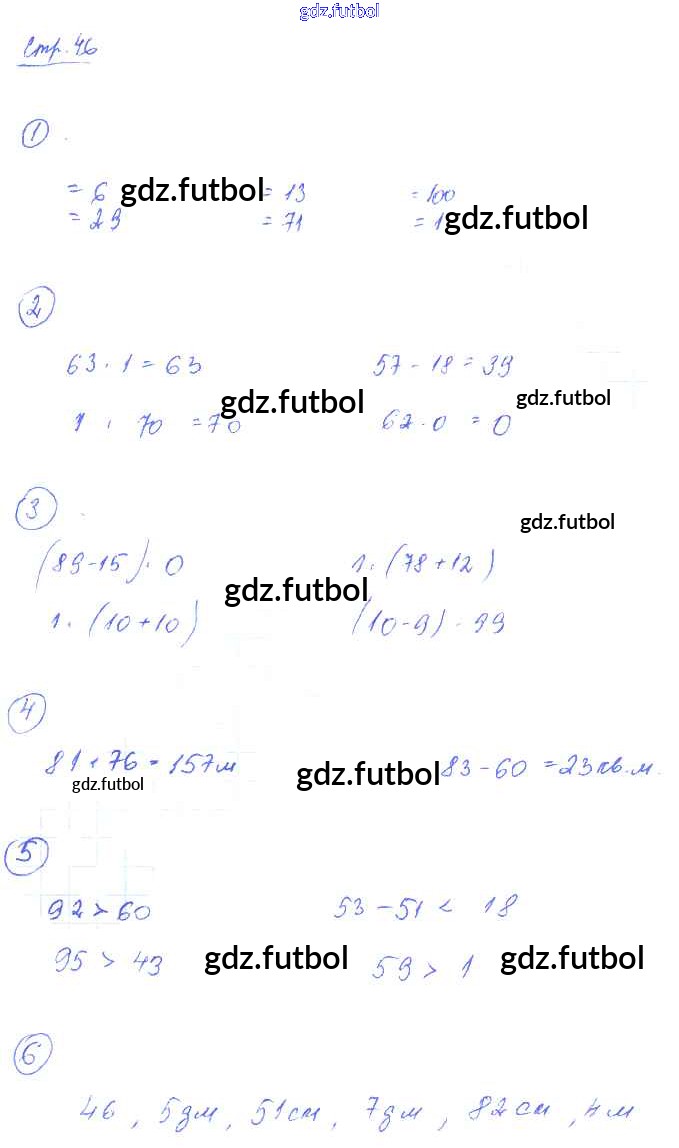 gdz.futbol
Стр. 46
1
= 6 gdz.futbol = 13 = 100
= 29 = 71 = 1 gdz.futbol
2
63 · 1 = 63 57 - 18 = 39
1 · 70 = 70 gdz.futbol 62 · 0 = 0 gdz.futbol
3 gdz.futbol
(89-15) · 0 1 · (78+12)
gdz.futbol
1 · (10+10) (10-9) · 99
4
81 + 76 = 157м gdz.futbol 83 - 60 = 23 кв.м.
gdz.futbol
5
92 > 60 53 - 51 < 18
95 > 43 gdz.futbol 59 > 1 gdz.futbol
6
46, 5дм, 51см, 7дм, 82см, 4м